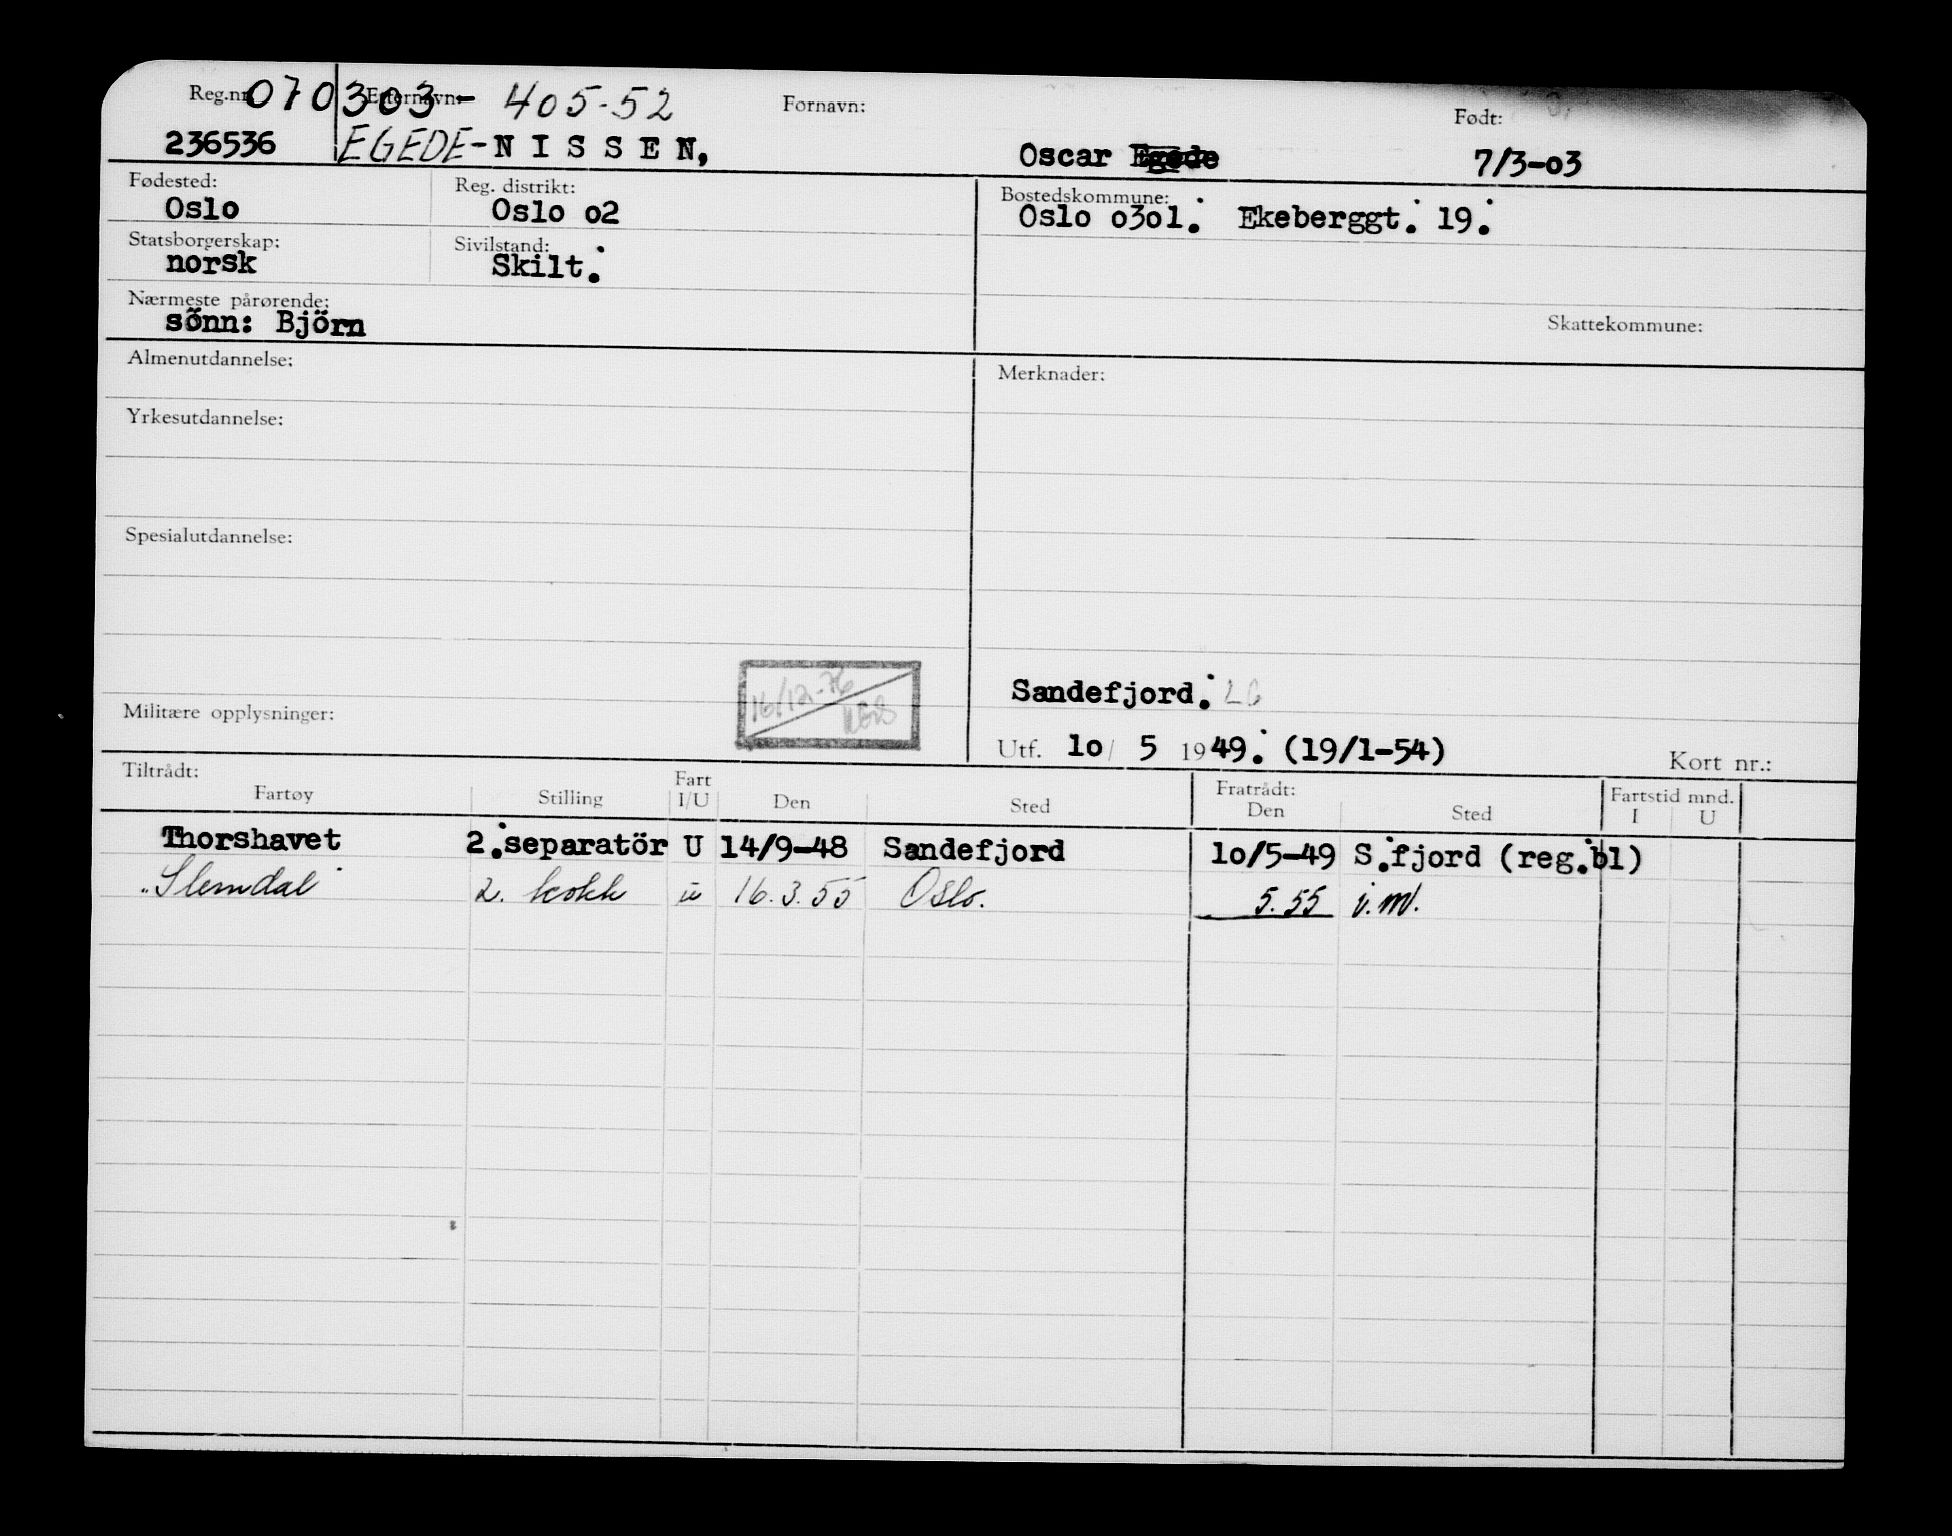 Reg.nr. 070303- 405-52 Etternavn: Fornavn: Født:
236536 EGEDE-NISSEN, Oscar Egede 7/3-03
Fødested: Reg. distrikt: Bostedskommune:
Oslo Oslo o2 Oslo o3o1. Ekeberggt. 19.
Statsborgerskap: Sivilstand:
norsk Skilt.
Nærmeste pårørende: Skattekommune:
sönn: Björn
Almenutdannelse: Merknader:
Yrkesutdannelse:
Spesialutdannelse:
16/12-76
Sandefjord. LG
Militære opplysninger:
Utf. 1o/ 5 1949. (19/1-54) Kort nr.:
Tiltrådt: Fratrådt: Fartstid mnd.
Fartøy Stilling Fart I/U Den Sted Den Sted I U
Thorshavet 2.separatör U 14/9-48 Sandefjord 1o/5-49 S.fjord (reg.bl)
"Slemdal" 2. kokk u 16.3.55 Oslo. 5.55 i.ml.